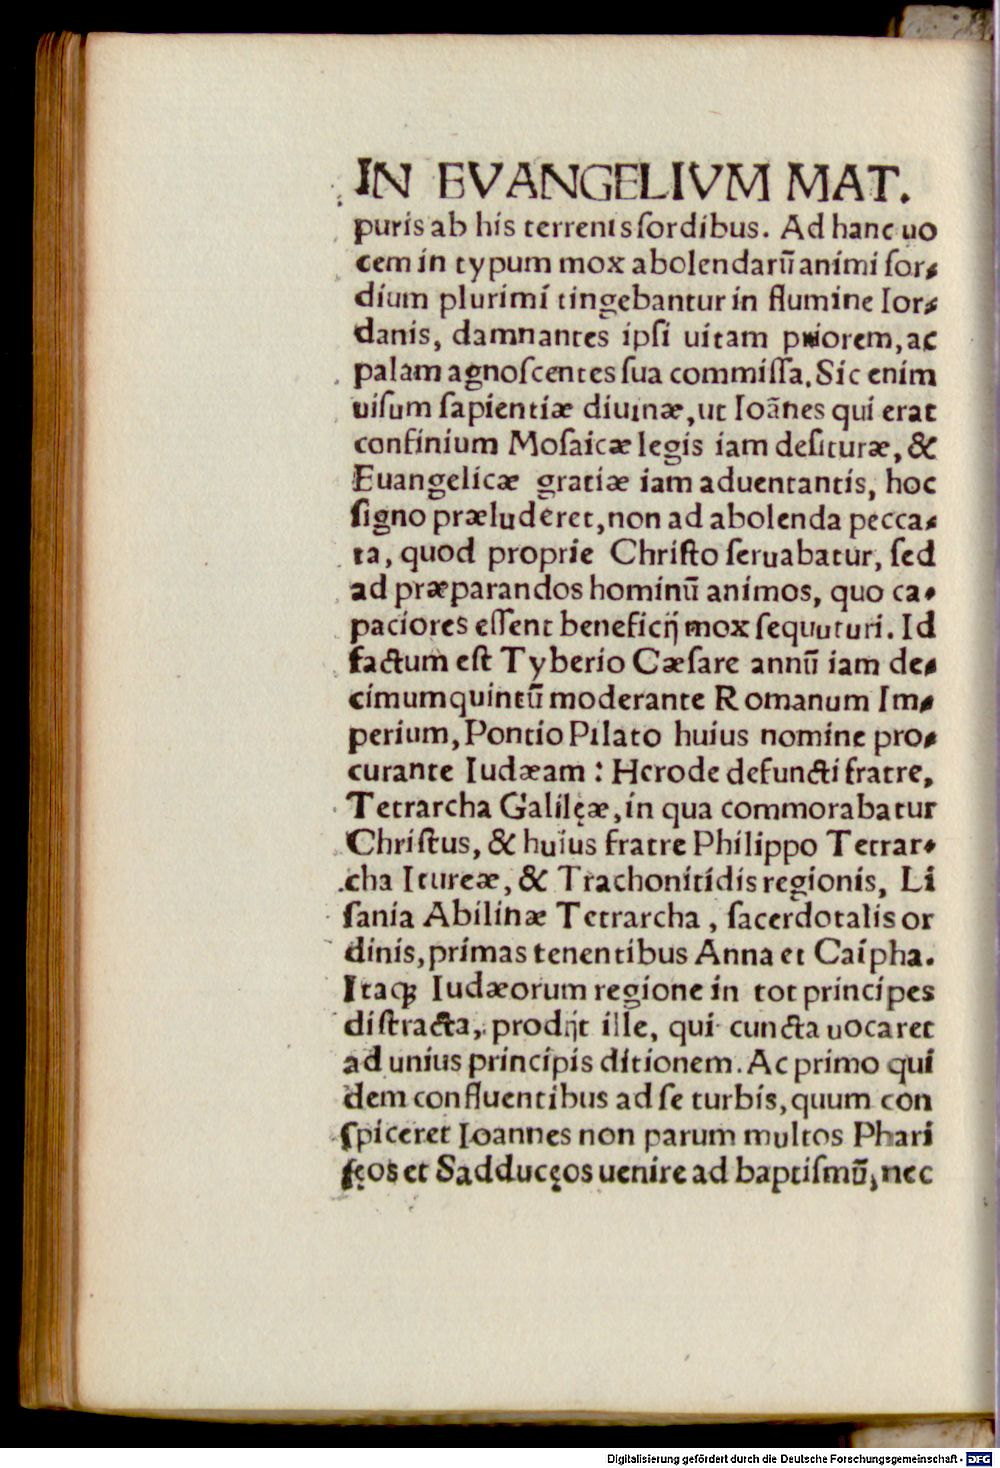 IN EVANGELIVM MAT.
puris ab his terrenis ſordibus. Ad hanc uo
cem in typum mox abolendarū animi ſor⸗
dium plurimi tingebantur in flumine Ior⸗
danis, damnantes ipſi uitam priorem, ac
palam agnoſcentes ſua commiſſa. Sic enim
uiſum ſapientiæ diuinæ, ut Ioānes qui erat
confinium Moſaicæ legis iam deſituræ, &
Euangelicæ gratiæ iam aduentantis, hoc
ſigno præluderet, non ad abolenda pecca⸗
ta, quod proprie Chriſto ſeruabatur, ſed
ad præparandos hominū animos, quo ca⸗
paciores eſſent beneficĳ mox ſequuturi. Id
factum eſt Tyberio Cæſare annū iam de⸗
cimumquintū moderante Romanum Im⸗
perium, Pontio Pilato huius nomine pro⸗
curante Iudæam : Herode defuncti fratre,
Tetrarcha Galilęæ, in qua commorabatur
Chriſtus, & huius fratre Philippo Tetrar⸗
cha Itureæ, & Trachonitidis regionis, Li
ſania Abilinæ Tetrarcha, ſacerdotalis or
dinis, primas tenentibus Anna et Caipha.
Itaqꝫ Iudæorum regione in tot principes
diſtracta, prodĳt ille, qui cuncta uocaret
ad unius principis ditionem. Ac primo qui
dem confluentibus ad ſe turbis, quum con
ſpiceret Ioannes non parum multos Phari
ſęos et Sadducęos uenire ad baptiſmū, nec
Digitalisierung gefördert durch die Deutsche Forschungsgemeinschaft - DFG